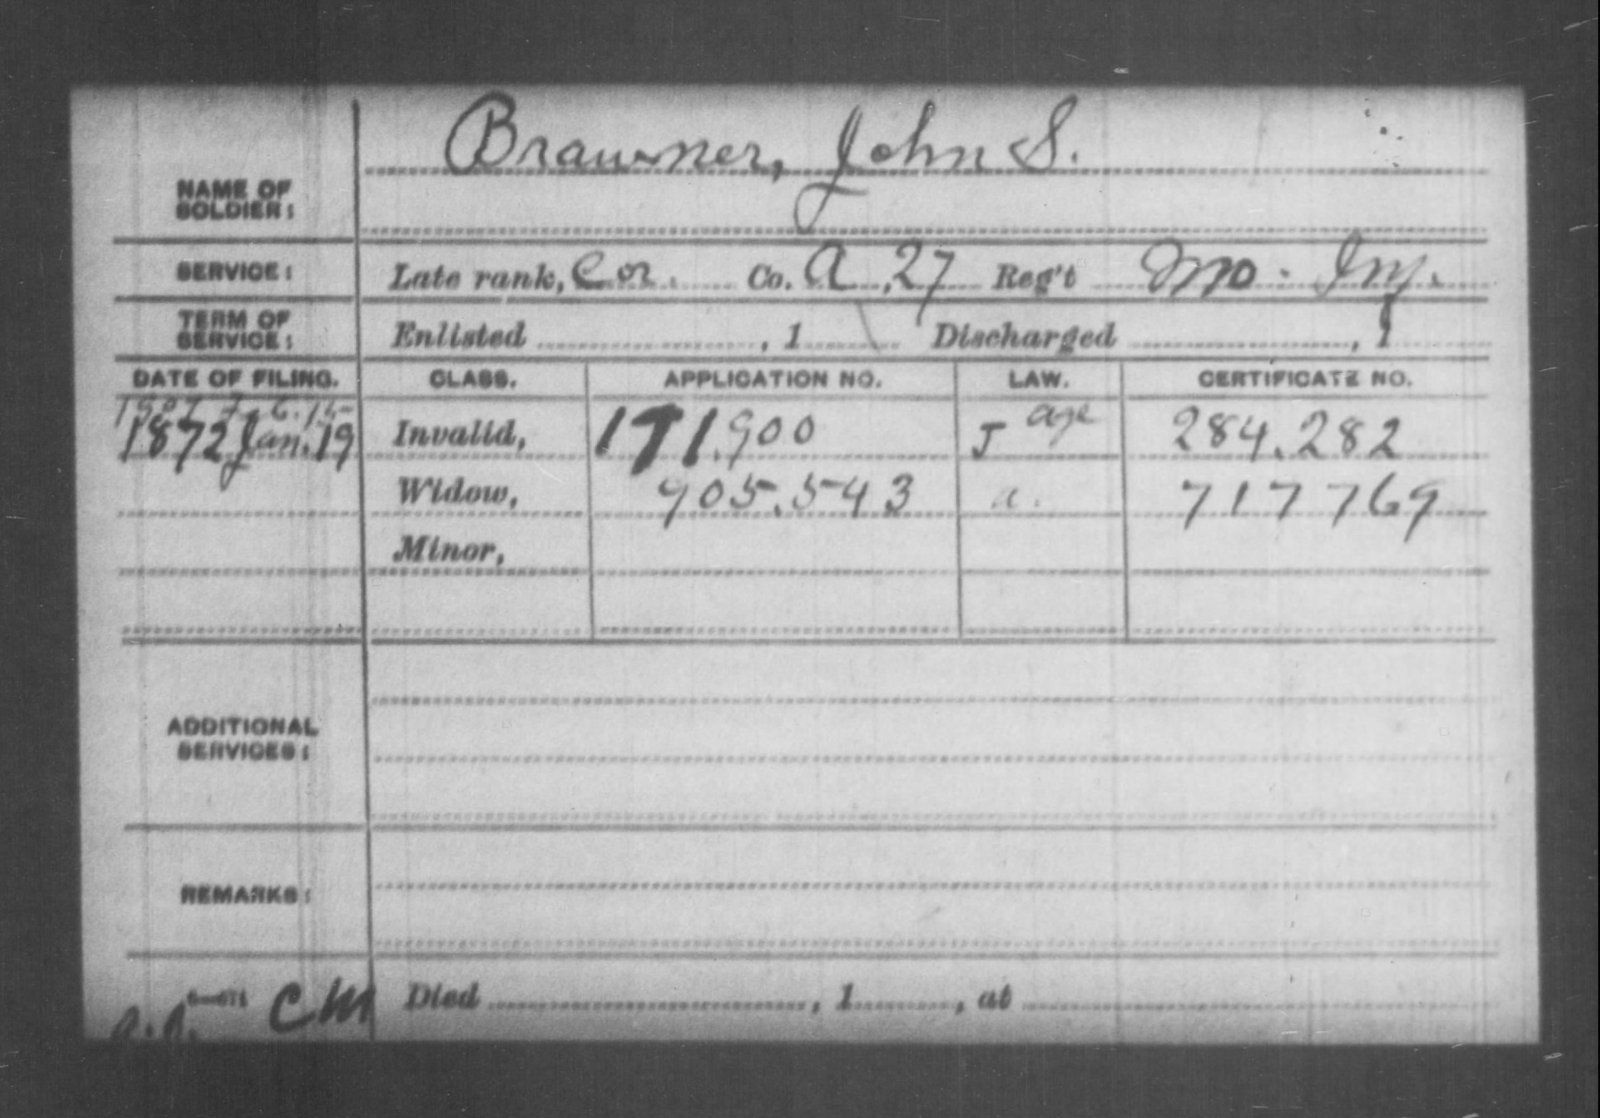 Brawner, John S.
NAME OF
SOLDIER:
SERVICE: Late rank, Cor. Co. A, 27 Reg't Mo. Inf.
TERM OF
SERVICE: Enlisted , 1 Discharged , 1
DATE OF FILING. CLASS. APPLICATION NO. LAW. CERTIFICATE NO.
1907 Feb. 15
1872 Jan. 19 Invalid, 171.900 J age 284.282
Widow, 905.543 a. 717769
Minor,
ADDITIONAL
SERVICES:
REMARKS:
6—071 CM Died , 1 , at